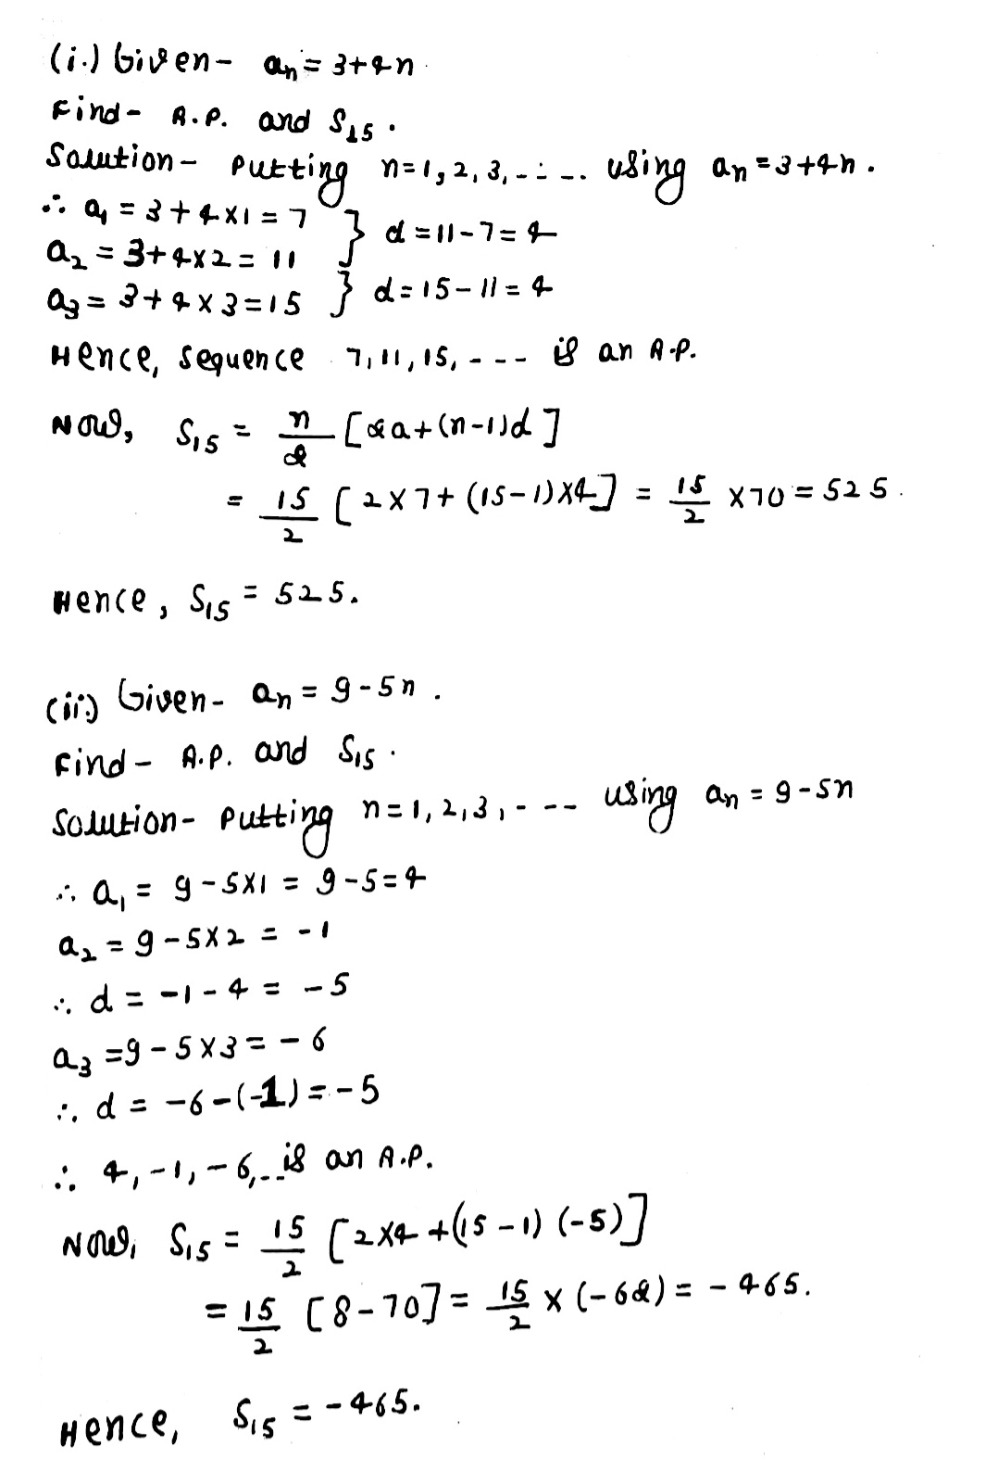 (i.) Given- an = 3+4n.
Find- A.P. and S15.
Solution- Putting n=1, 2, 3, ---- using an = 3+4n.
∴ a1 = 3+4×1 = 7 } d = 11-7 = 4
a2 = 3+4×2 = 11
a3 = 3+4×3 = 15 } d = 15-11 = 4
Hence, sequence 7, 11, 15, --- is an A.P.
Now, S15 = n/2 [2a+(n-1)d]
= 15/2 [2×7+(15-1)×4] = 15/2 ×70 = 525.
Hence, S15 = 525.
(ii.) Given- an = 9-5n.
Find- A.P. and S15.
Solution- Putting n=1, 2, 3, ---- using an = 9-5n
∴ a1 = 9-5×1 = 9-5 = 4
a2 = 9-5×2 = -1
∴ d = -1-4 = -5
a3 = 9-5×3 = -6
∴ d = -6-(-1) = -5
∴ 4, -1, -6, -- is an A.P.
Now, S15 = 15/2 [2×4+(15-1)(-5)]
= 15/2 [8-70] = 15/2 × (-62) = -465.
Hence, S15 = -465.